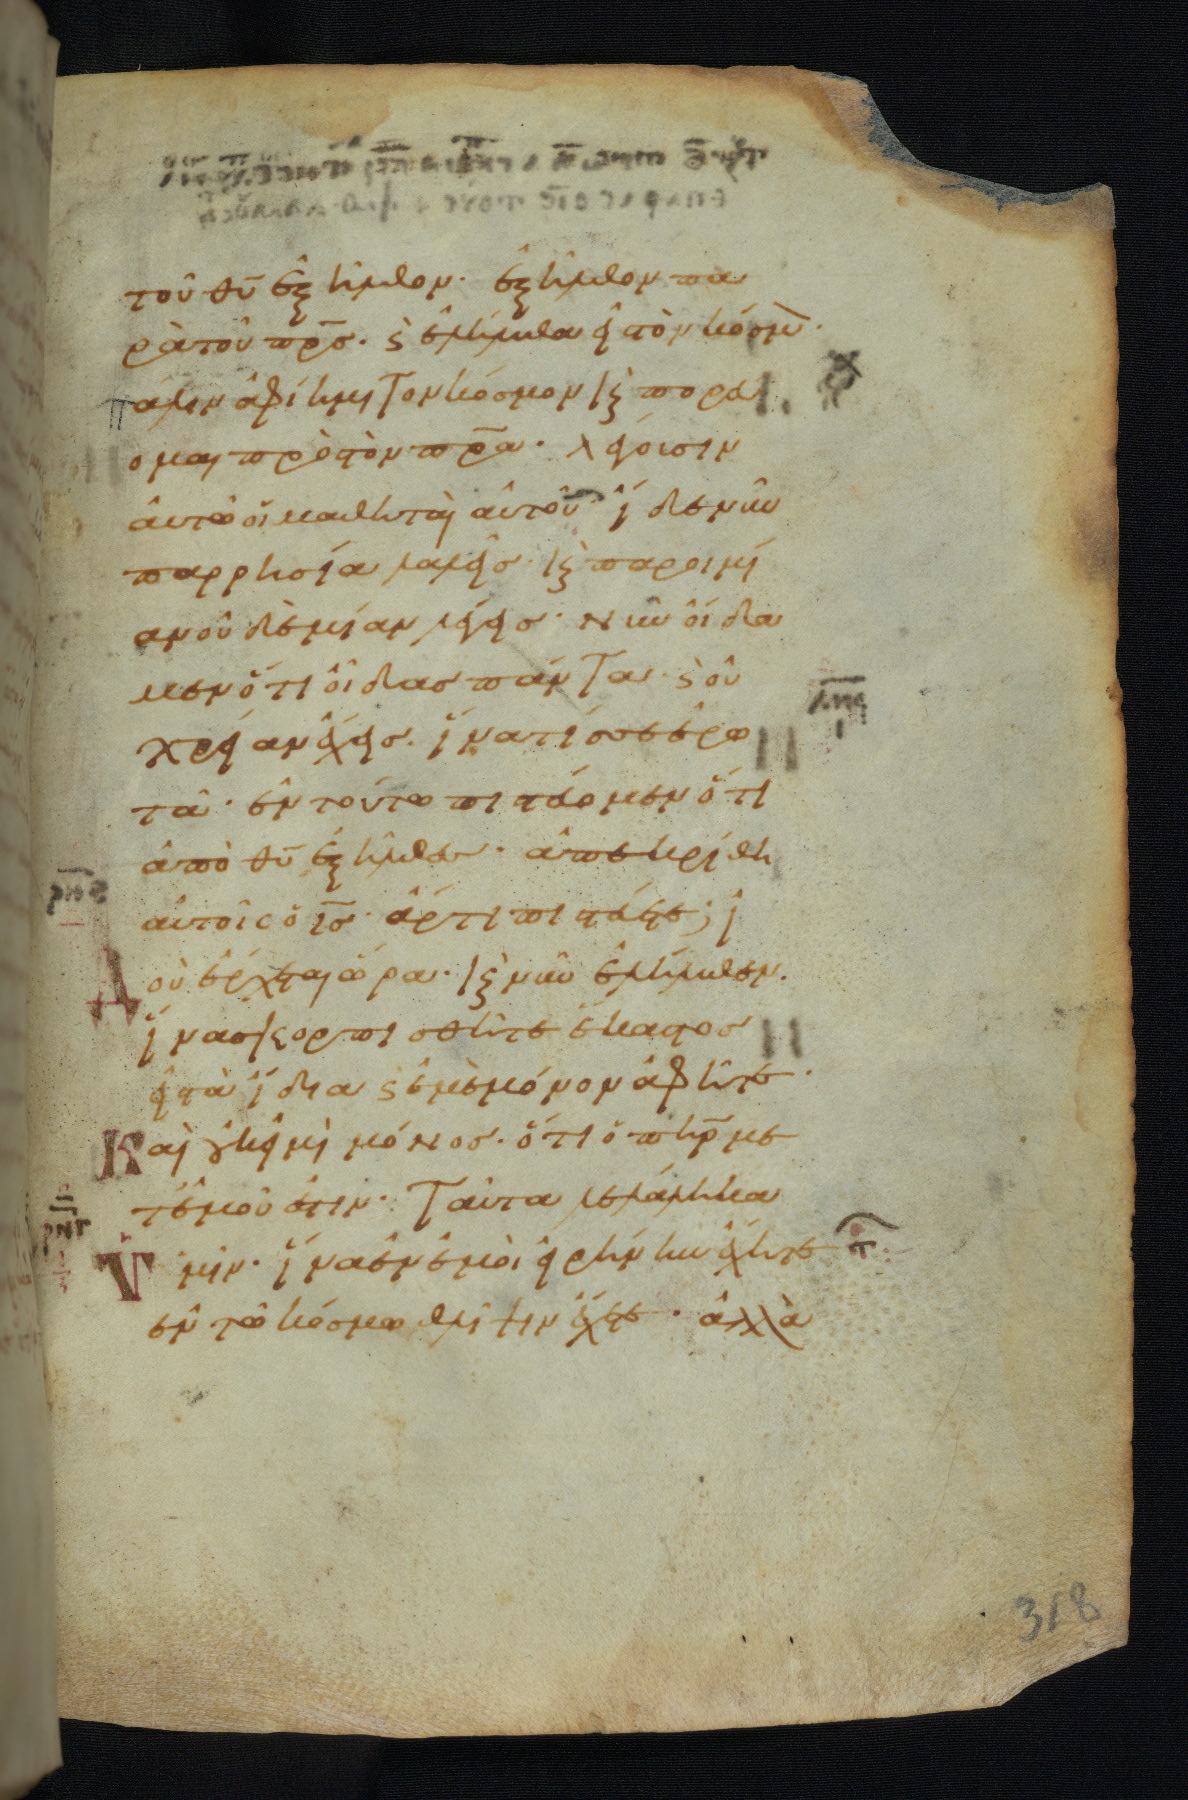 τοῦ θῦ ἐξῆλθον· ἐξῆλθον πα
ρὰ τοῦ πρσ· ϛ ἐλήλυθα εἰς τὸν κόσμον·
πάλιν ἀφίημι τον κόσμον κ̀ πορεύ
ομαι πρὸς τὸν πρα· λέγουσιν
αὐτῶ οἱ μαθηταὶ αὐτοῦ· ἴδε νῦν
παρρησία λαλεῖς· κ̀ παροιμί
αν οὐδεμίαν λέγεις· νῦν οἴδα
μεν ὅτι οἶδας πάντα· ϛ οὐ
χρείαν ἔχεις· ἵνα τίς σε ἐρω
τᾶ· ἐν τούτω πιστεύομεν ὅτι
ἀπὸ θῦ ἐξῆλθες· ἀπεκρίθη
αὐτοῖς ὁ ις· ἄρτι πιστεύετε; ἰ
δοὺ ἔρχεται ὥρα· κ̀ νῦν ἐλήλυθεν·
ἵνα σκορπισθῆτε ἕκαστος
εἰς τὰ ἴδια ϛ ἐμὲ μόνον ἀφῆτε·
Καὶ οὐκ εἰμὶ μόνος· ὅτι ὁ πηρ με
τ' ἐμοῦ ἐστιν· Ταῦτα λελάληκα
ὑμιν· ἵνα ἐν ἐμοὶ εἰρήνην ἔχητε
ἐν τῶ κόσμω θλίψιν ἔχετε· ἀλλὰ
318